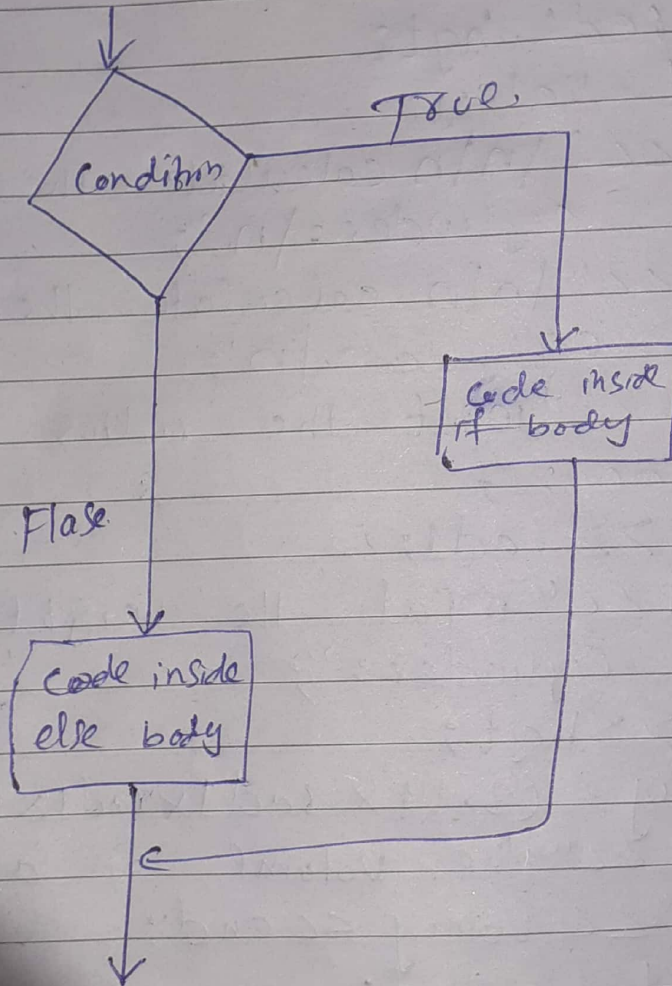 True.
Condition
Code inside
if body
Flase
Code inside
else body